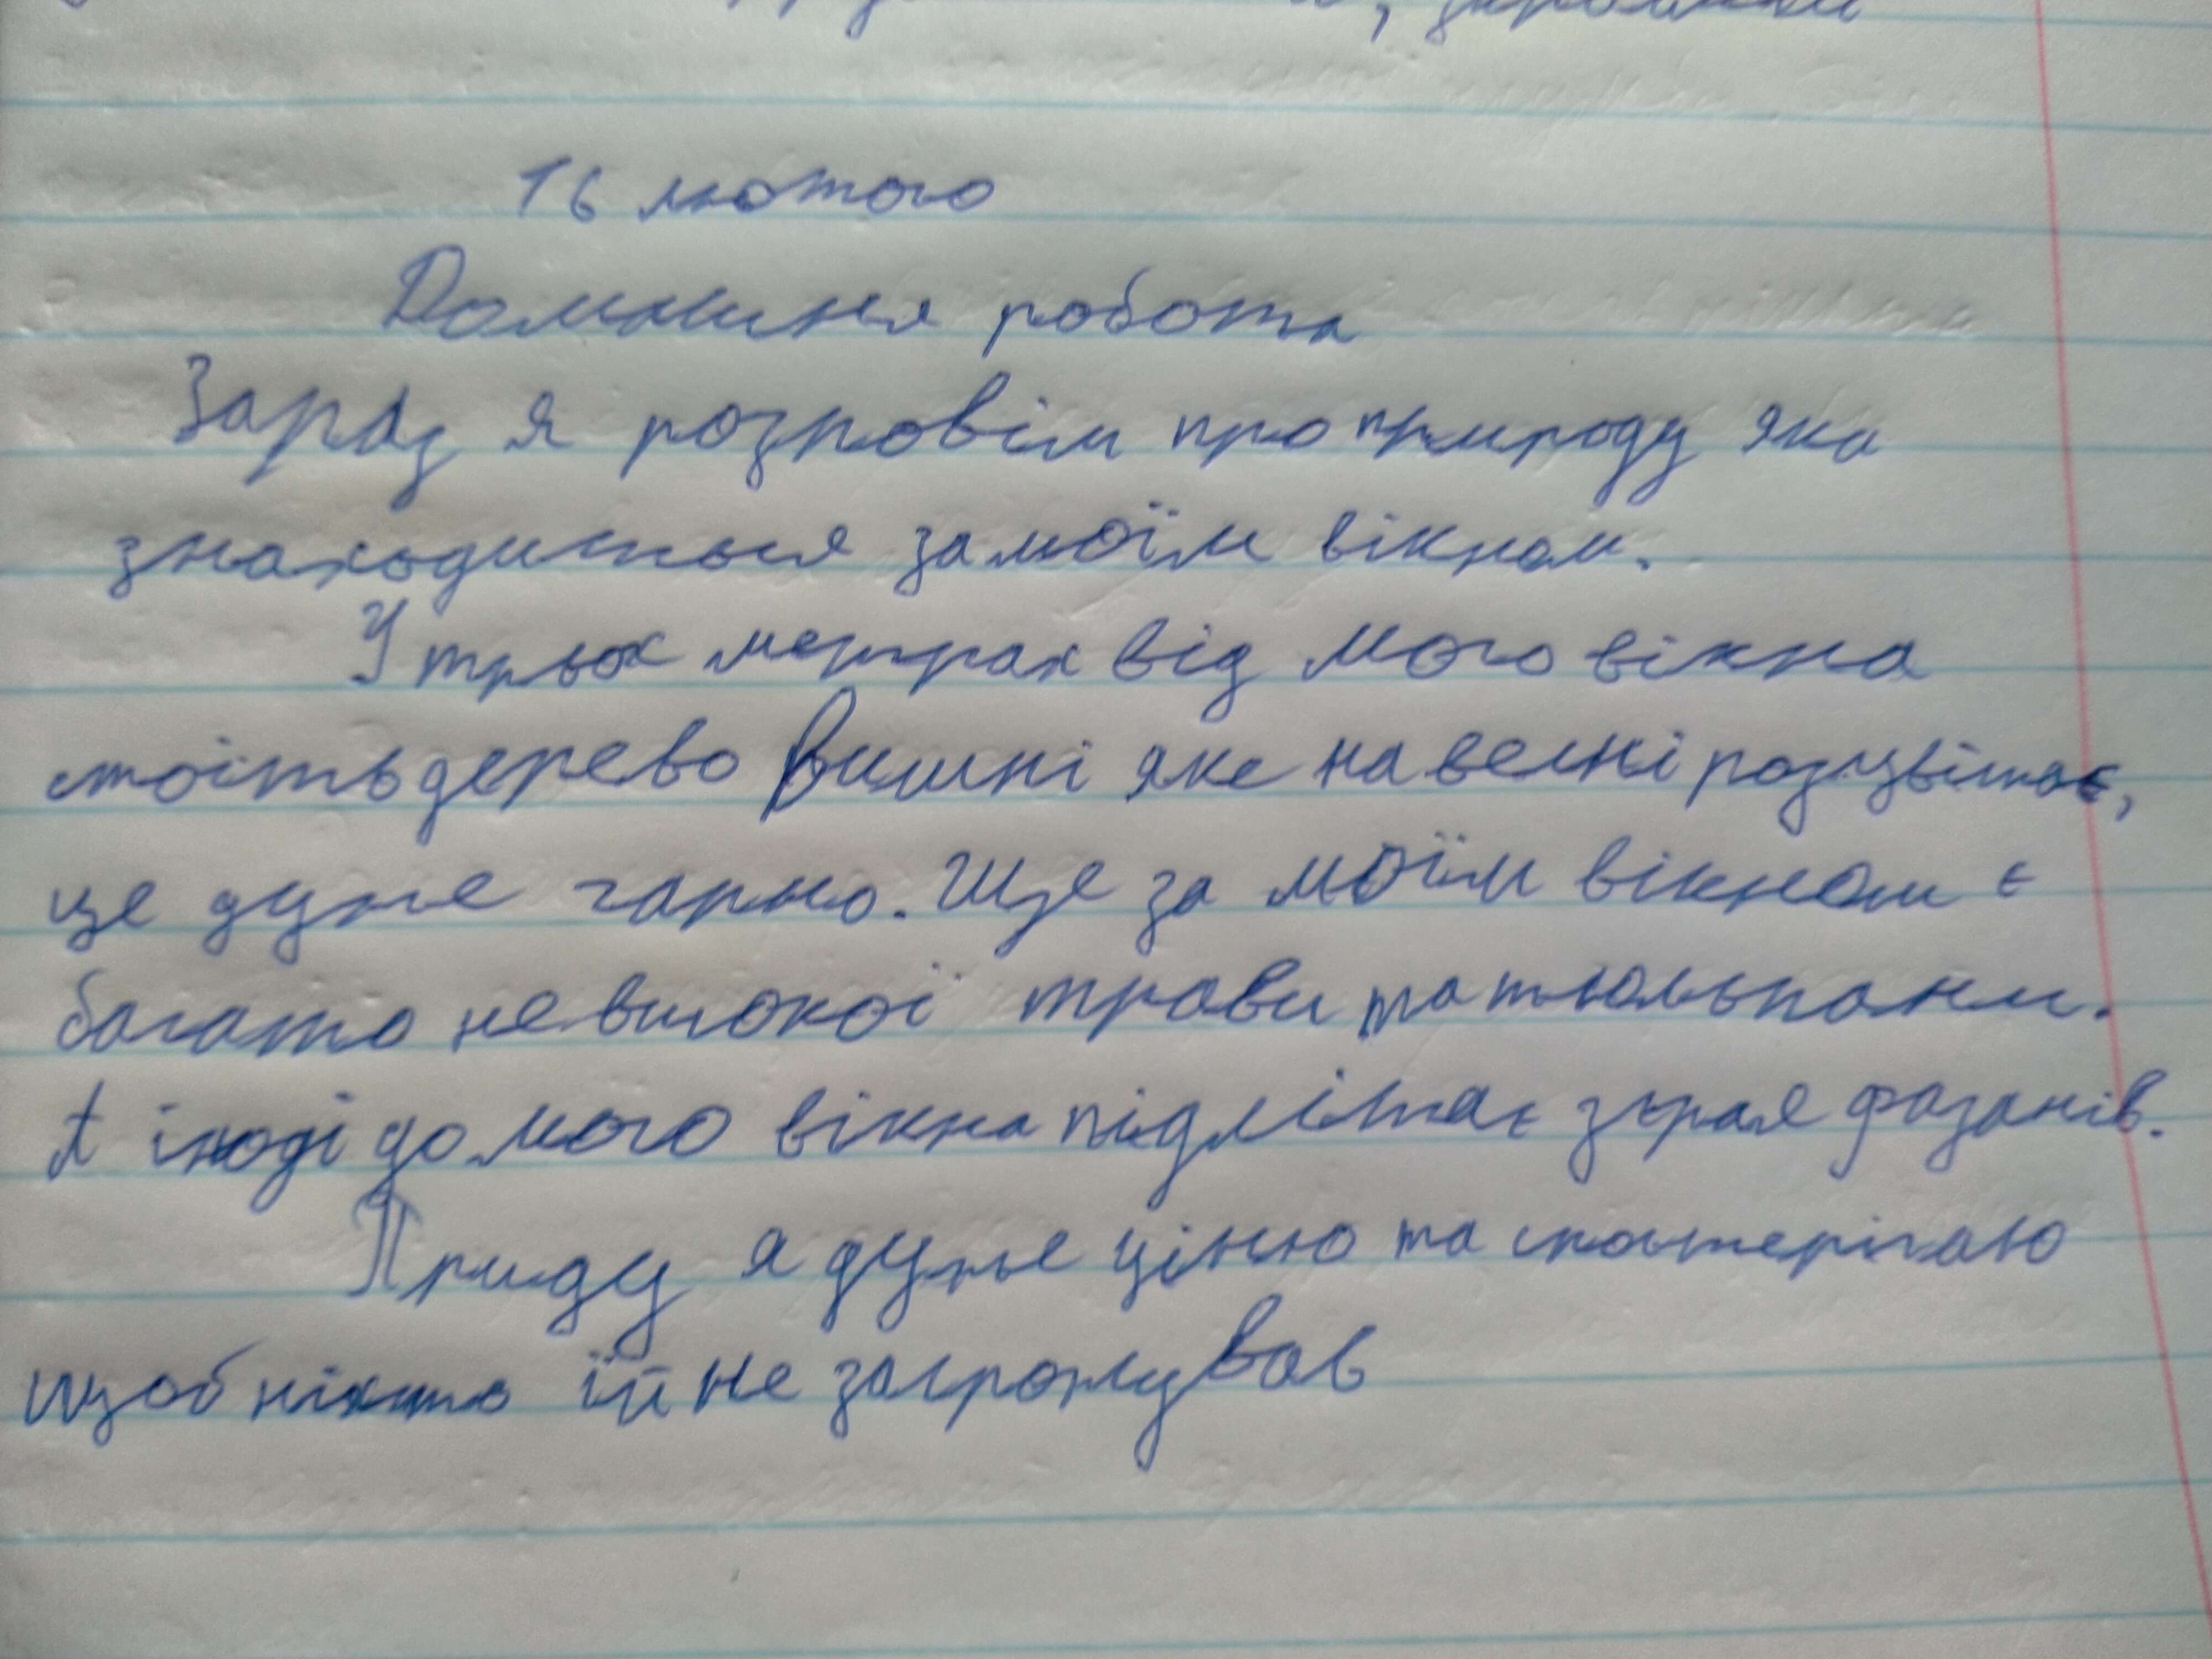 16 лютого
Домашня робота
Зараз я розповім про природу яка
знаходиться за моїм вікном.
У трьох метрах від мого вікна
стоїть дерево вишні яке на весні розцвітає,
це дуже гарно. Ще за моїм вікном є
багато не високої трави та тюльпани.
А іноді до мого вікна підлітає зграя фазанів.
Приду я дуже ціню та спостерігаю
щоб ніхто їй не загрожував